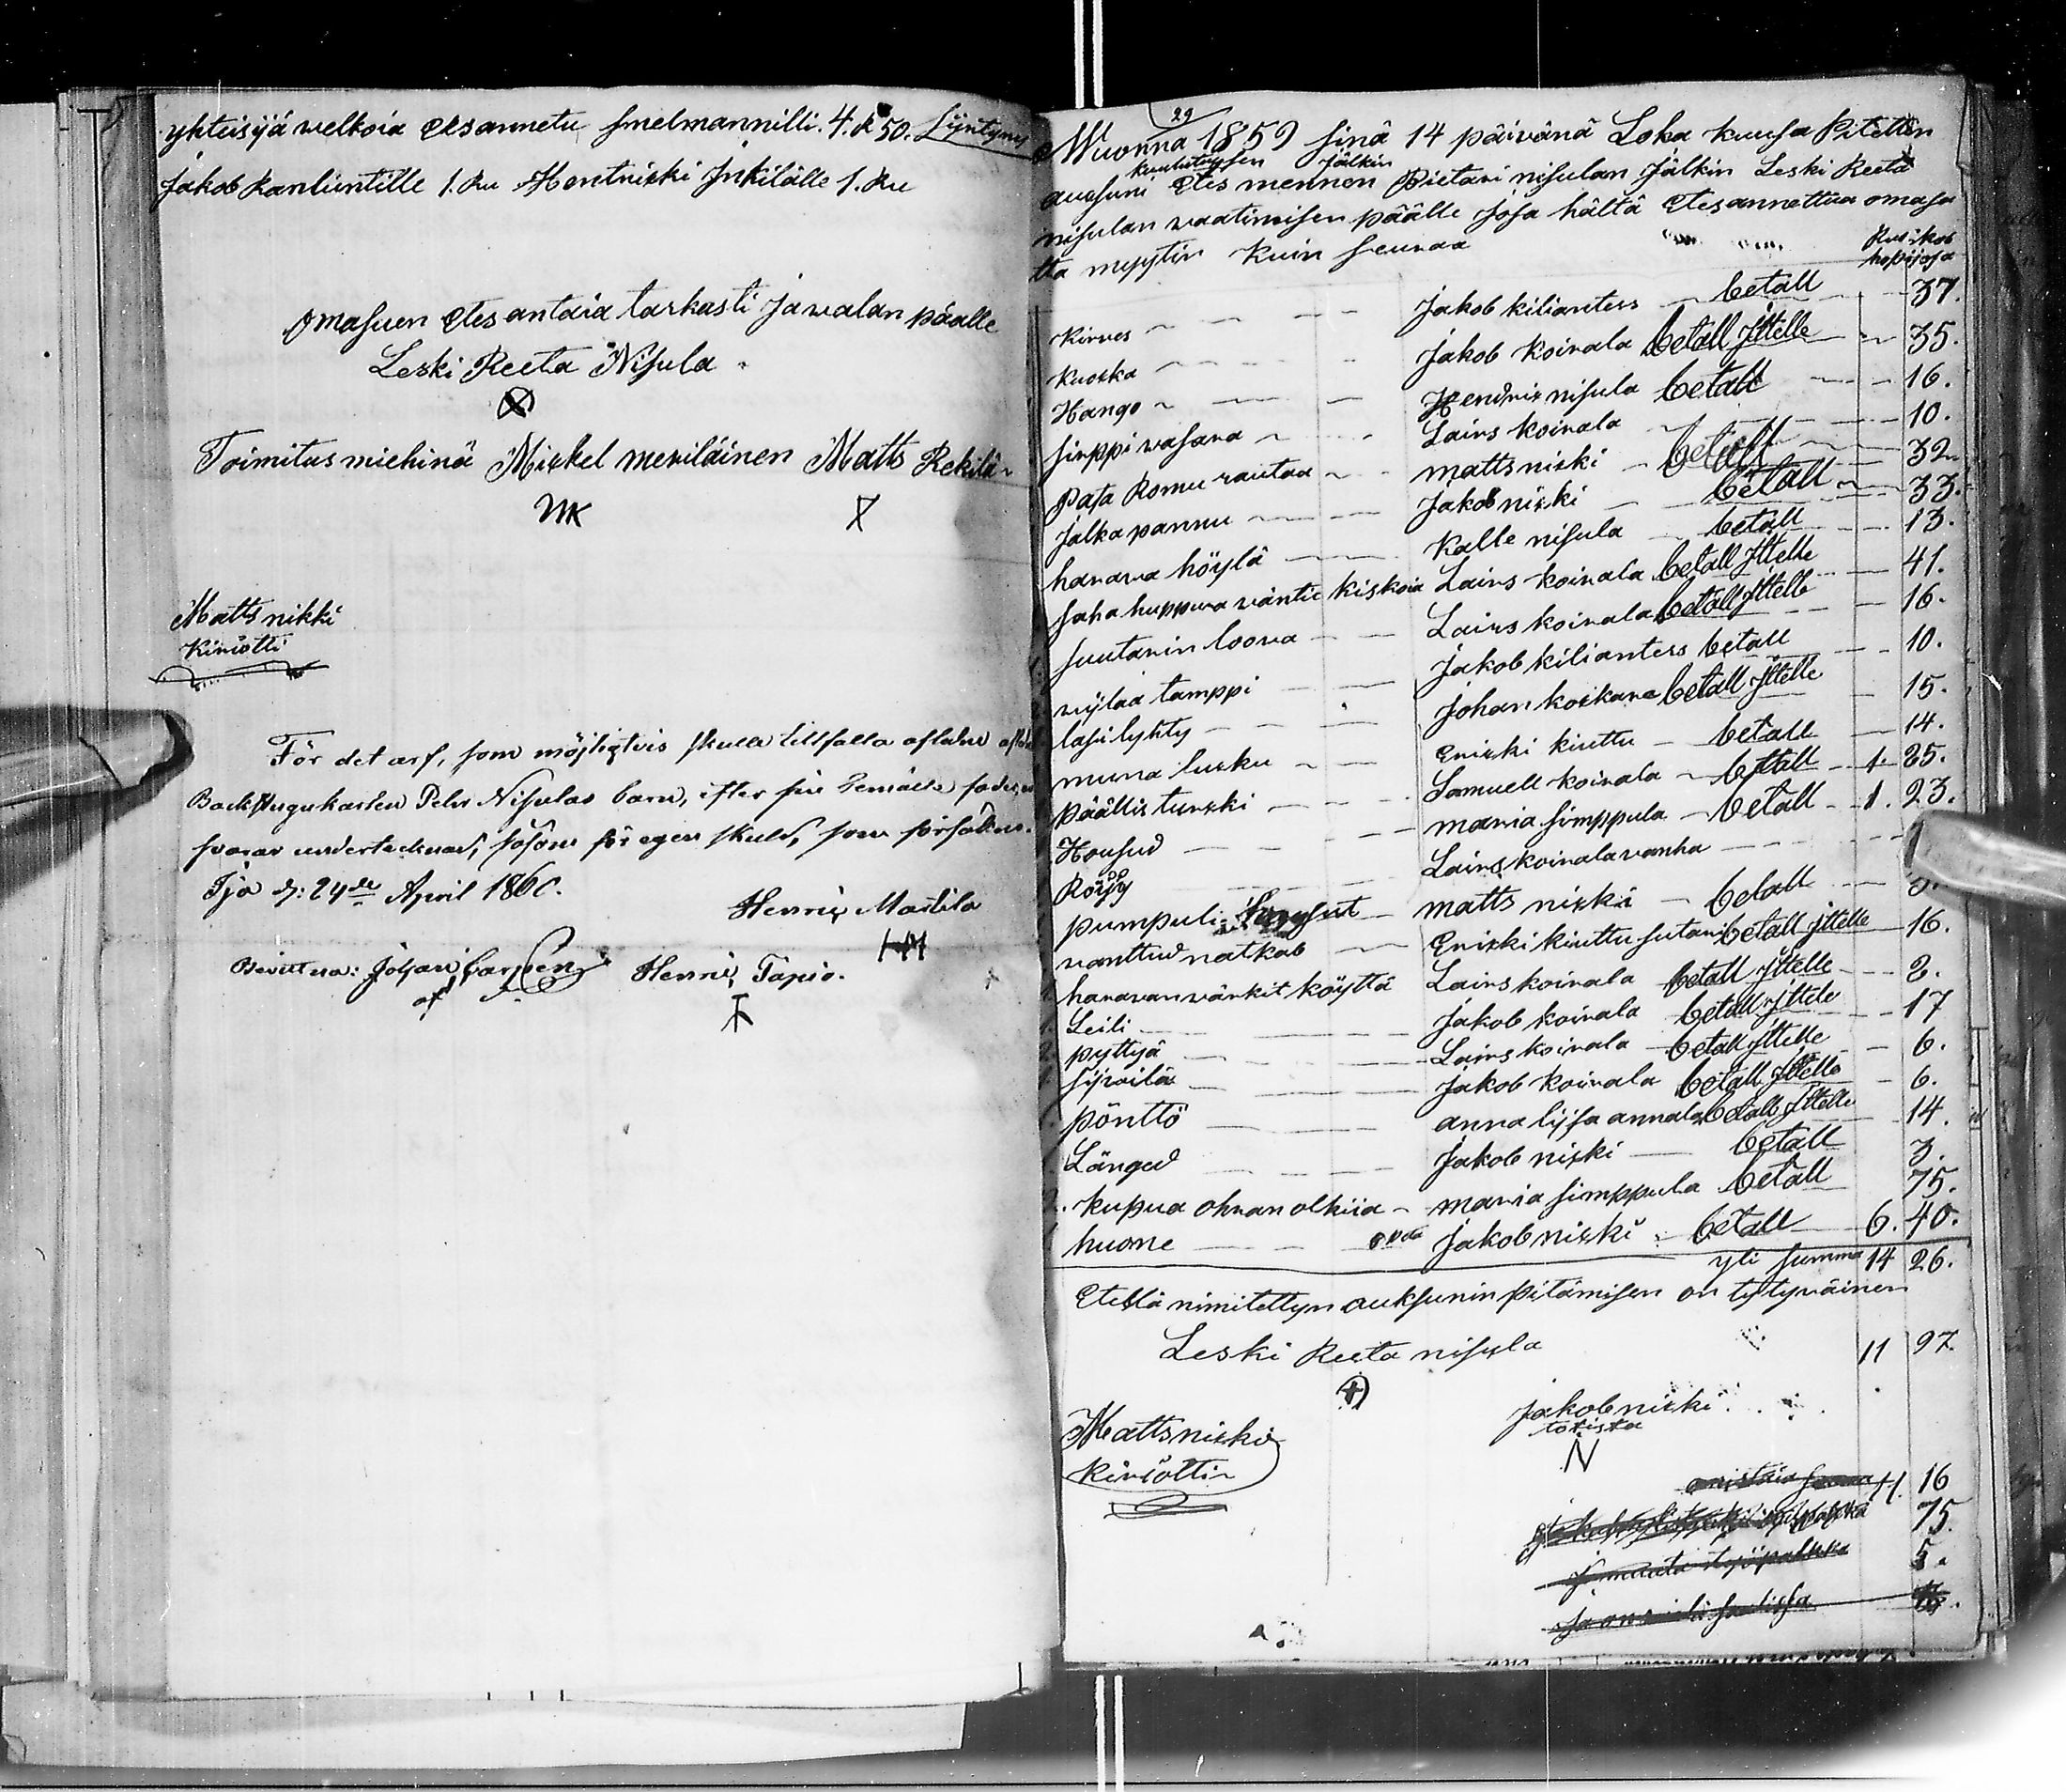 yhteisijä welkoia Edesannetu Smelmannilli. 4. R 50.
Jakob Kanliintille 1. Ru Hentrikki Inkilälle 1. Ru
Omasuen Etes antaia tarkasti ja walan päälle
Leski Reeta Nisula
Toimitus miehinä Mikkel meriläinen Matts Rekilä
MK
X
Matts nikki
Kiriotti
För det arf, som möjligtvis skulle tillfalla aflidne
Backstugukarlen Pehr Nisulas barn, efter sin
svarar undertecknad, såsom för egen skuld, som försäkras.
Ijo d: 24de April 1860.
Henric Mattila
HM
Bevittna: Johan Henric Tapio.
29
Wuonna 1859 sinä 14 päivänä Loka kuusa Pitettin
kuulutuksen jälkin
auksuni Etes mennen Pietari nisulan Jälkin Leski Reeta
nisulan vaatimisen päälle Josa hältä Etesannettua omasu
tta myytin kuin seuraa
Ru kob
hopijosa
Kirves Jakob kilianters betall 37.
Kuokka Jakob Koivala betall Jttelle 35.
Hango Hendrik nisula betalt 16.
sinppi vasara Lairs koivala 10.
Pata Romu rautaa matts nikki betalt 32
Jalka pannu Jakob nikki betall 33.
harava höylä Kalle nisula betall 13.
saha huppura väntie kiskoia Lairs koivala betall Jttelle 41.
suutarin loova Lairs koivala betall Jttelle 16.
vylaa tamppi Jakob kilianters betall 10.
lasi lyhty Johan koskare betall Jttelle 15.
muna lukku Erikki kiuttu betall 14.
päällis turkki Samuell koivala betall 1. 25.
Housud maria simppula betall 1. 23.
Röijy Lairs koivala vanha
pumpuli matts nikki betall
vanttud natkab Erikki kiuttu sutari betall Jttelle 16.
haravan värkit köyttä Lairs koivala betall Jttelle 2.
Leili Jakob koivala betall Jttele 17
pyttyä Lairs koivala betall Jttelle 6.
sijvilä Jakob koivala betall Jttelle 6.
pönttö anna lijsa annala betall Jttelle 14.
Länged Jakob nikki betall 3.
2. kupua ohran olkiia maria simppula betall 75.
huone Jakob nikki betall 6. 40.
yli summa 14 26.
Etellä nimitettyn auksunin pitämisen on tytyväinen
Leski Reeta nisula 11 97.
Matts nikki Jakob nikki
Kiriottin totista
N
16
75.
5.